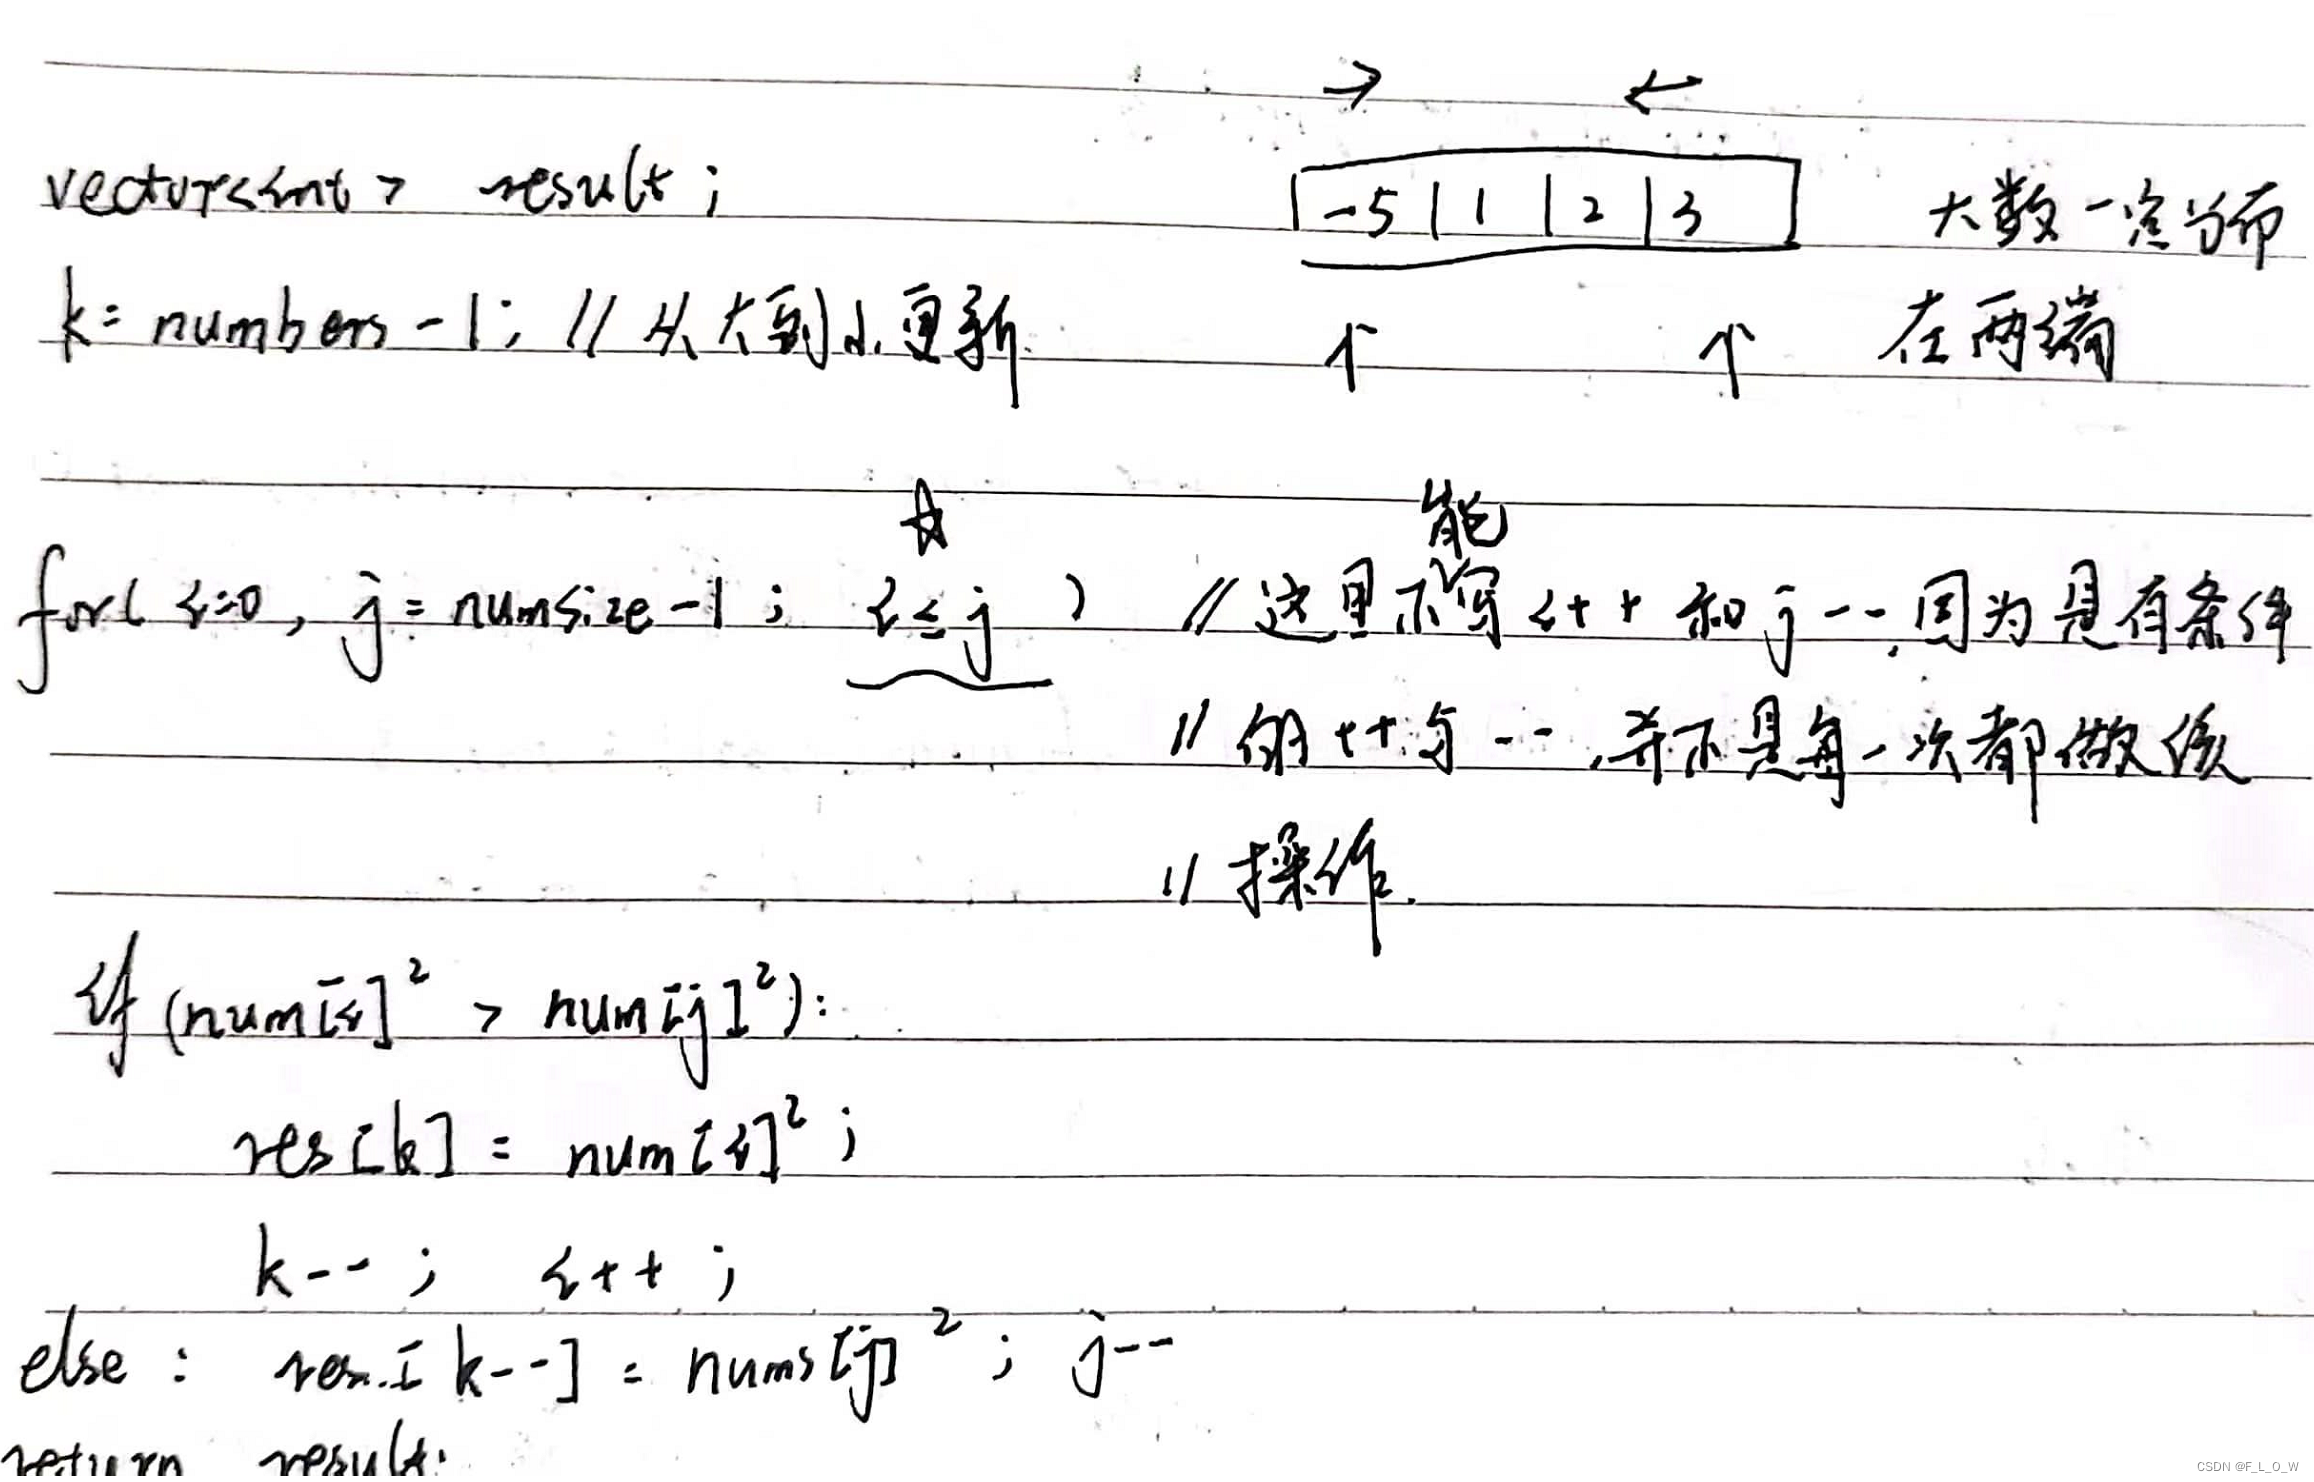 → ←
vector<int> result; -5 | 1 | 2 | 3 大数一定分布
k = numbers - 1; // 从大到小更新. ↑ ↑ 在两端
☆ 能
for( i=0, j = numsize - 1; i ≤ j ) // 这里不写 i++ 和 j--, 因为是有条件
// 的 ++ 与 --, 并不是每一次都做该
// 操作.
if (num[i]² > num[j]²):
res[k] = num[i]²;
k--; i++;
else: res[k--] = nums[j]²; j--
return result;
CSDN @F_L_O_W